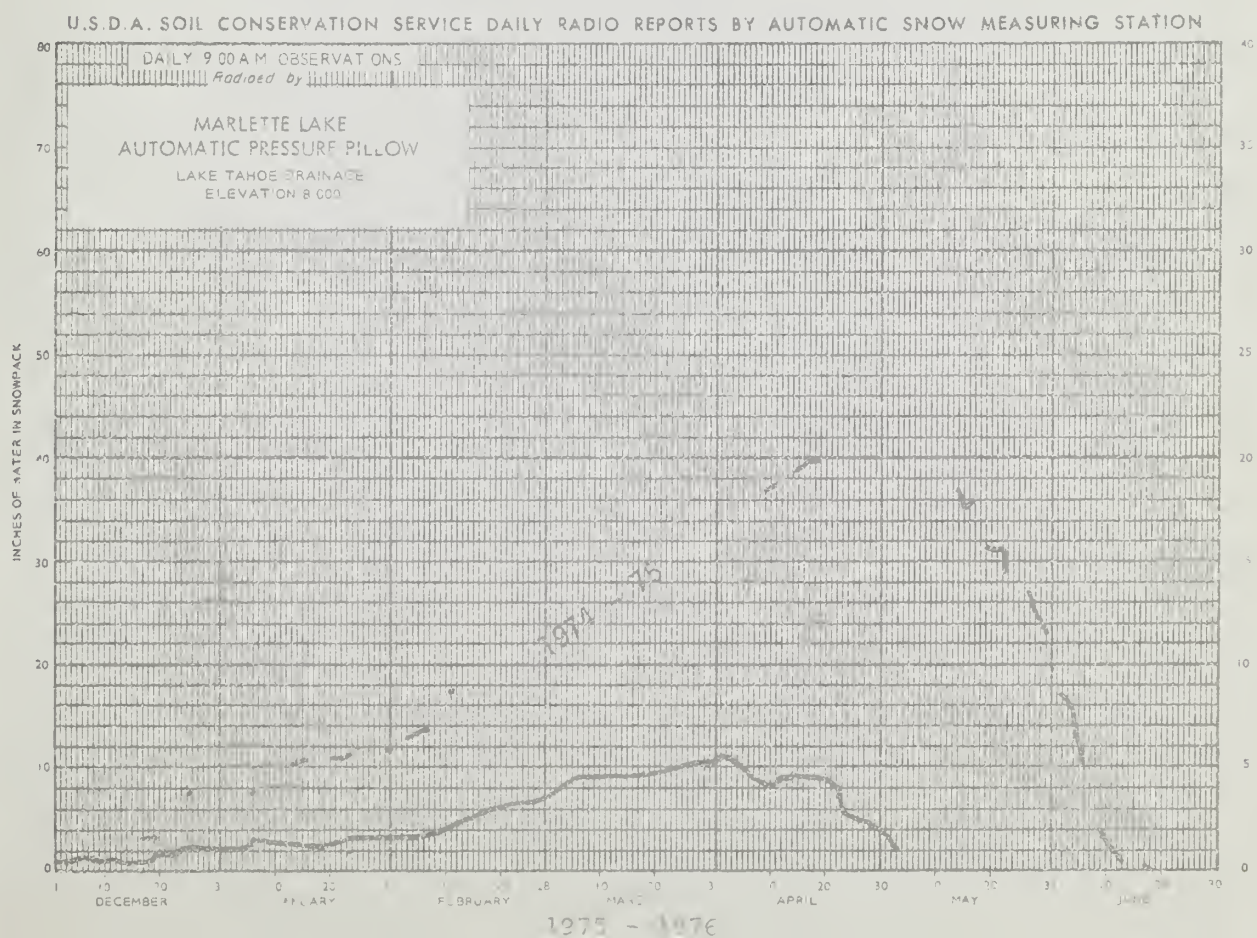 U.S.D.A. SOIL CONSERVATION SERVICE DAILY RADIO REPORTS BY AUTOMATIC SNOW MEASURING STATION
DAILY 9 00 A M OBSERVATIONS
Radioed by
MARLETTE LAKE
AUTOMATIC PRESSURE PILLOW
LAKE TAHOE DRAINAGE
ELEVATION 8 000
INCHES OF WATER IN SNOWPACK
80 40
70
60 30
50 25
40 20
30
20 10
10 5
0 0
1974 - 75
1 10 20 3 20 28 10 20 3 20 30 20 31 30
DECEMBER FEBRUARY APRIL MAY JUNE
1975 - 1976